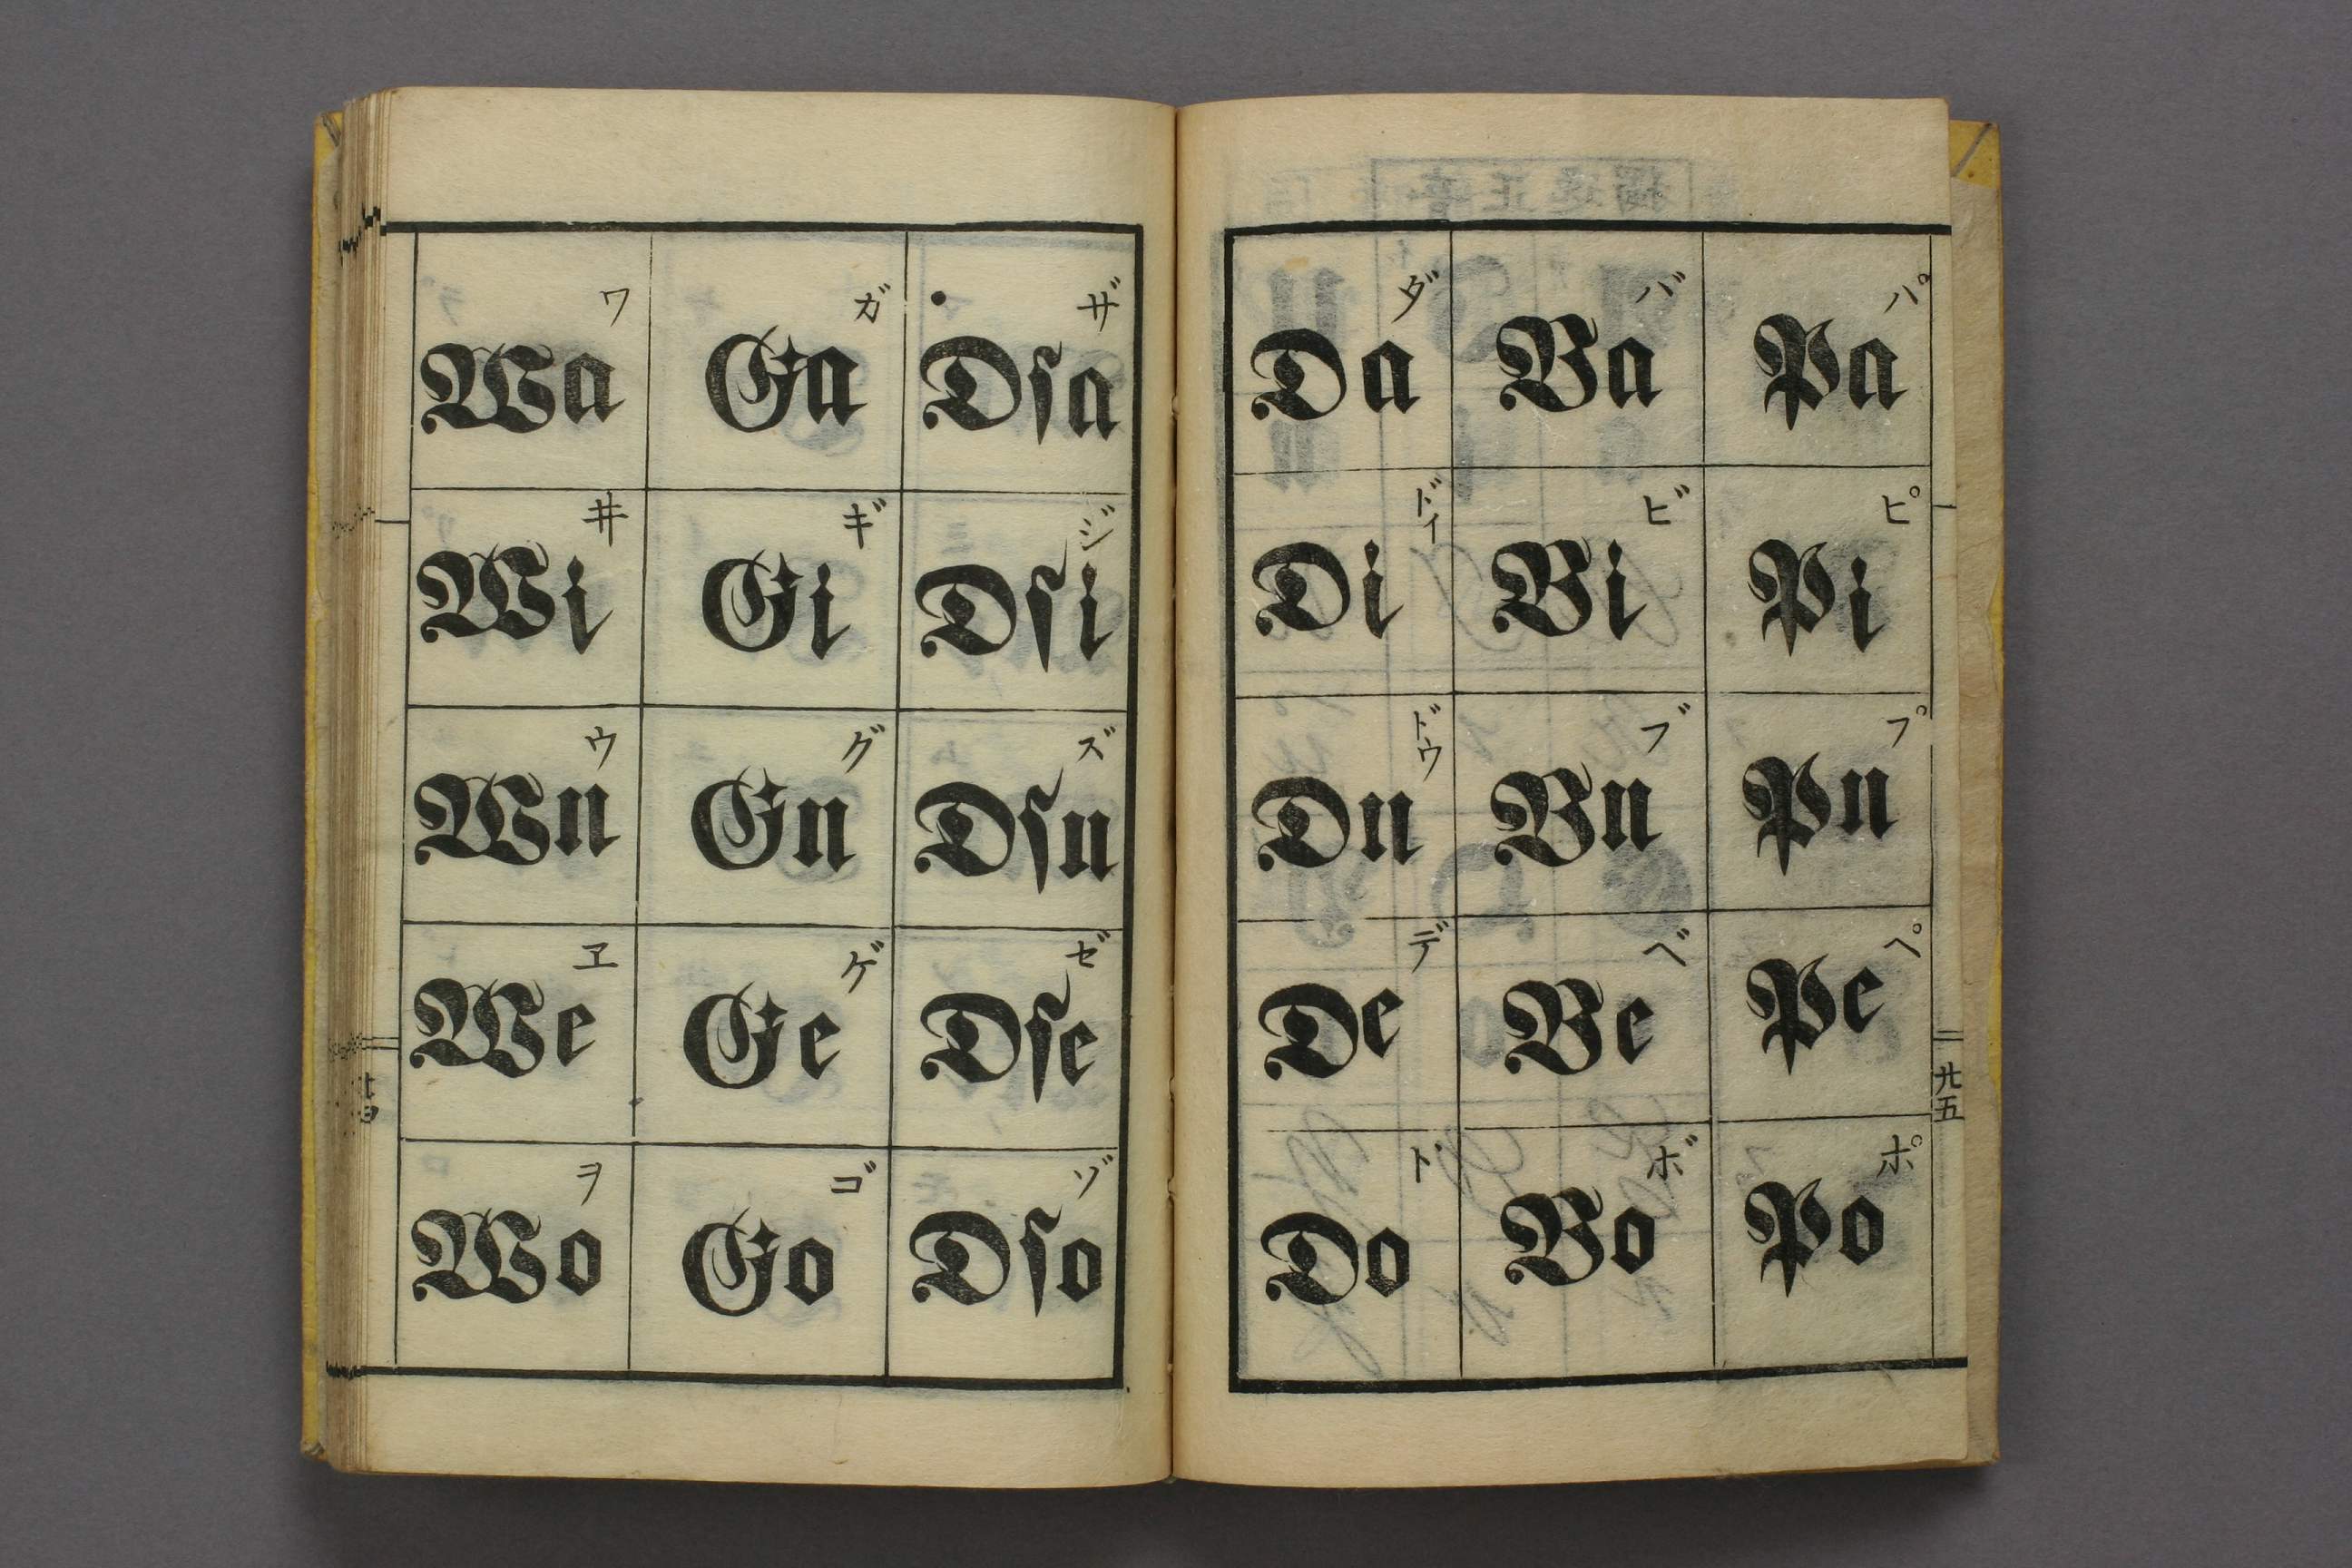 ワ ガ ザ
Wa Ga Dſa
ヰ ギ ジ
Wi Gi Dſi
ウ グ ズ
Wu Gu Dſu
ヱ ゲ ゼ
We Ge Dſe
ヲ ゴ ゾ
Wo Go Dſo
ダ バ パ
Da Ba Pa
ドィ ビ ピ
Di Bi Pi
ドウ ブ プ
Du Bu Pu
デ ベ ペ
De Be Pe
ド ボ ポ
Do Bo Po
廿五